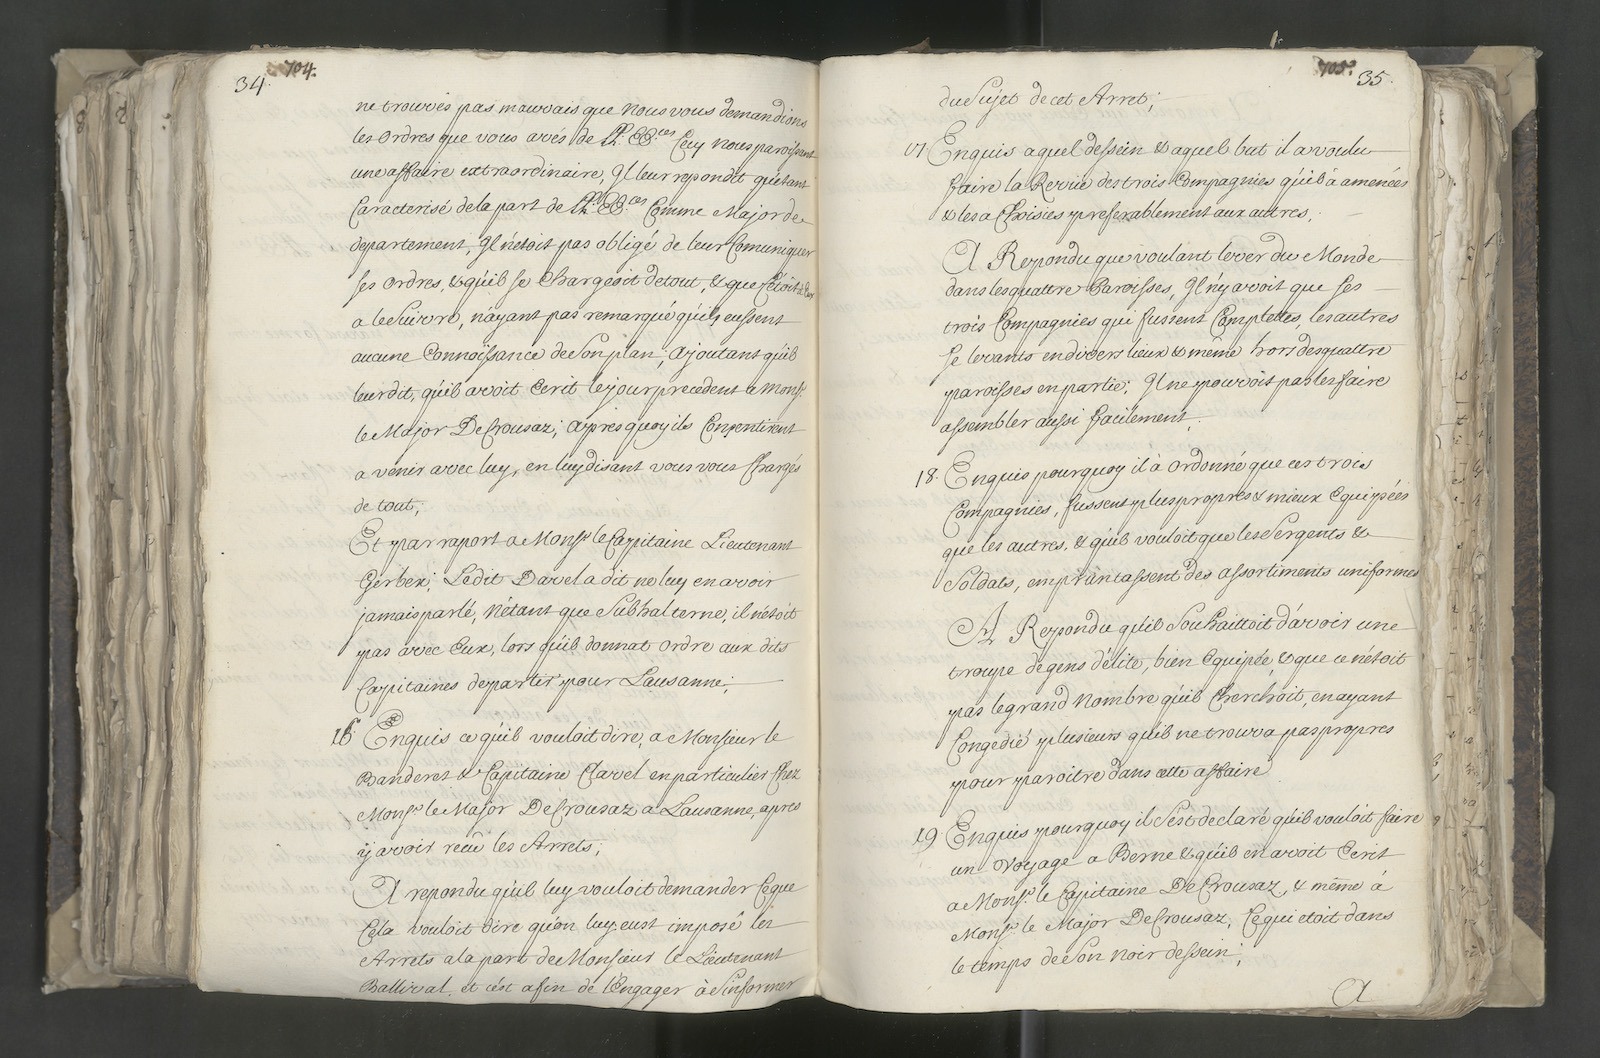 34 704.
ne trouvés pas mauvais que Nous vous demandions
les Ordres que vous avés de LL. EE.ces Cecy nous paroissant
une affaire extraordinaire, Il leur repondit qu'étant
Caracterisé de la part de LL. EE.ces Comme Major de
departement, Il n'étoit pas obligé de leur Comuniquer
ses Ordres, & qu'il se Chargeoit de tout, & que C'étoit à Eux
a le Suivre, n'ayant pas remarqué qu'ils eussent
aucune Connoissance de Son plan; Ajoutant qu'il
leur dit, qu'il avoit Ecrit le jour precedent a Monsr.
le Major DeCrousaz; Apres quoy ils Consentirent
a venir avec luy, en luy disant vous vous Chargés
de tout;
Et par raport a Monsr. le Capitaine Lieutenant
Gerbex; Ledit Davel a dit ne luy en avoir
jamais parlé, N'étant que Subhalterne, il n'étoit
pas avec Eux, lors qu'il donnat Ordre aux dits
Capitaines de partir pour Lausanne;
16 Enquis ce qu'il vouloit dire, a Monsieur le
Banderet & Capitaine Clavel en particulier Chez
Monsr. le Major DeCrousaz a Lausanne, apres
y avoir recû les Arrets;
A repondu qu'il luy vouloit demander Ce que
Cela vouloit dire qu'on luy eust imposé les
Arrets a la part de Monsieur le Lieutenant
Ballival, et c'est afin de l'Engager à S'informer
705. 35.
du Sujet de cet Arret;
17 Enquis a quel dessein & a quel but il a voulu
faire la Revüe des trois Compagnies qu'il à amenées
& les a Choisies preferablement aux autres,
A Repondu que voulant lever du Monde
dans les quattre Paroisses, Il n'y avoit que Ses
trois Compagnies qui fussent Complettes, les autres
Se levants en divers lieux & même hors des quattre
paroisses en partie; Il ne pouvoit pas les faire
assembler aussi facilement.
18. Enquis pourquoy il à Ordonné que ces trois
Compagnies, fussent plus propres & mieux Equipées
que les autres, & qu'il vouloit que les Sergents &
Soldats, empruntassent des assortiments uniformes
A Repondu qu'il Souhaittoit d'avoir une
troupe de gens d'élite, bien Equipée, & que ce n'étoit
pas le grand Nombre qu'il Cherchoit, en ayant
Congedié plusieurs qu'il ne trouva pas propres
pour paroitre dans cette affaire
19 Enquis pourquoy il S'est declaré qu'il vouloit faire
un Voyage a Berne & qu'il en avoit Ecrit
a Monsr. le Capitaine DeCrousaz, & même à
Monsr. le Major DeCrousaz, Ce qui étoit dans
le temps de Son Noir dessein;
A